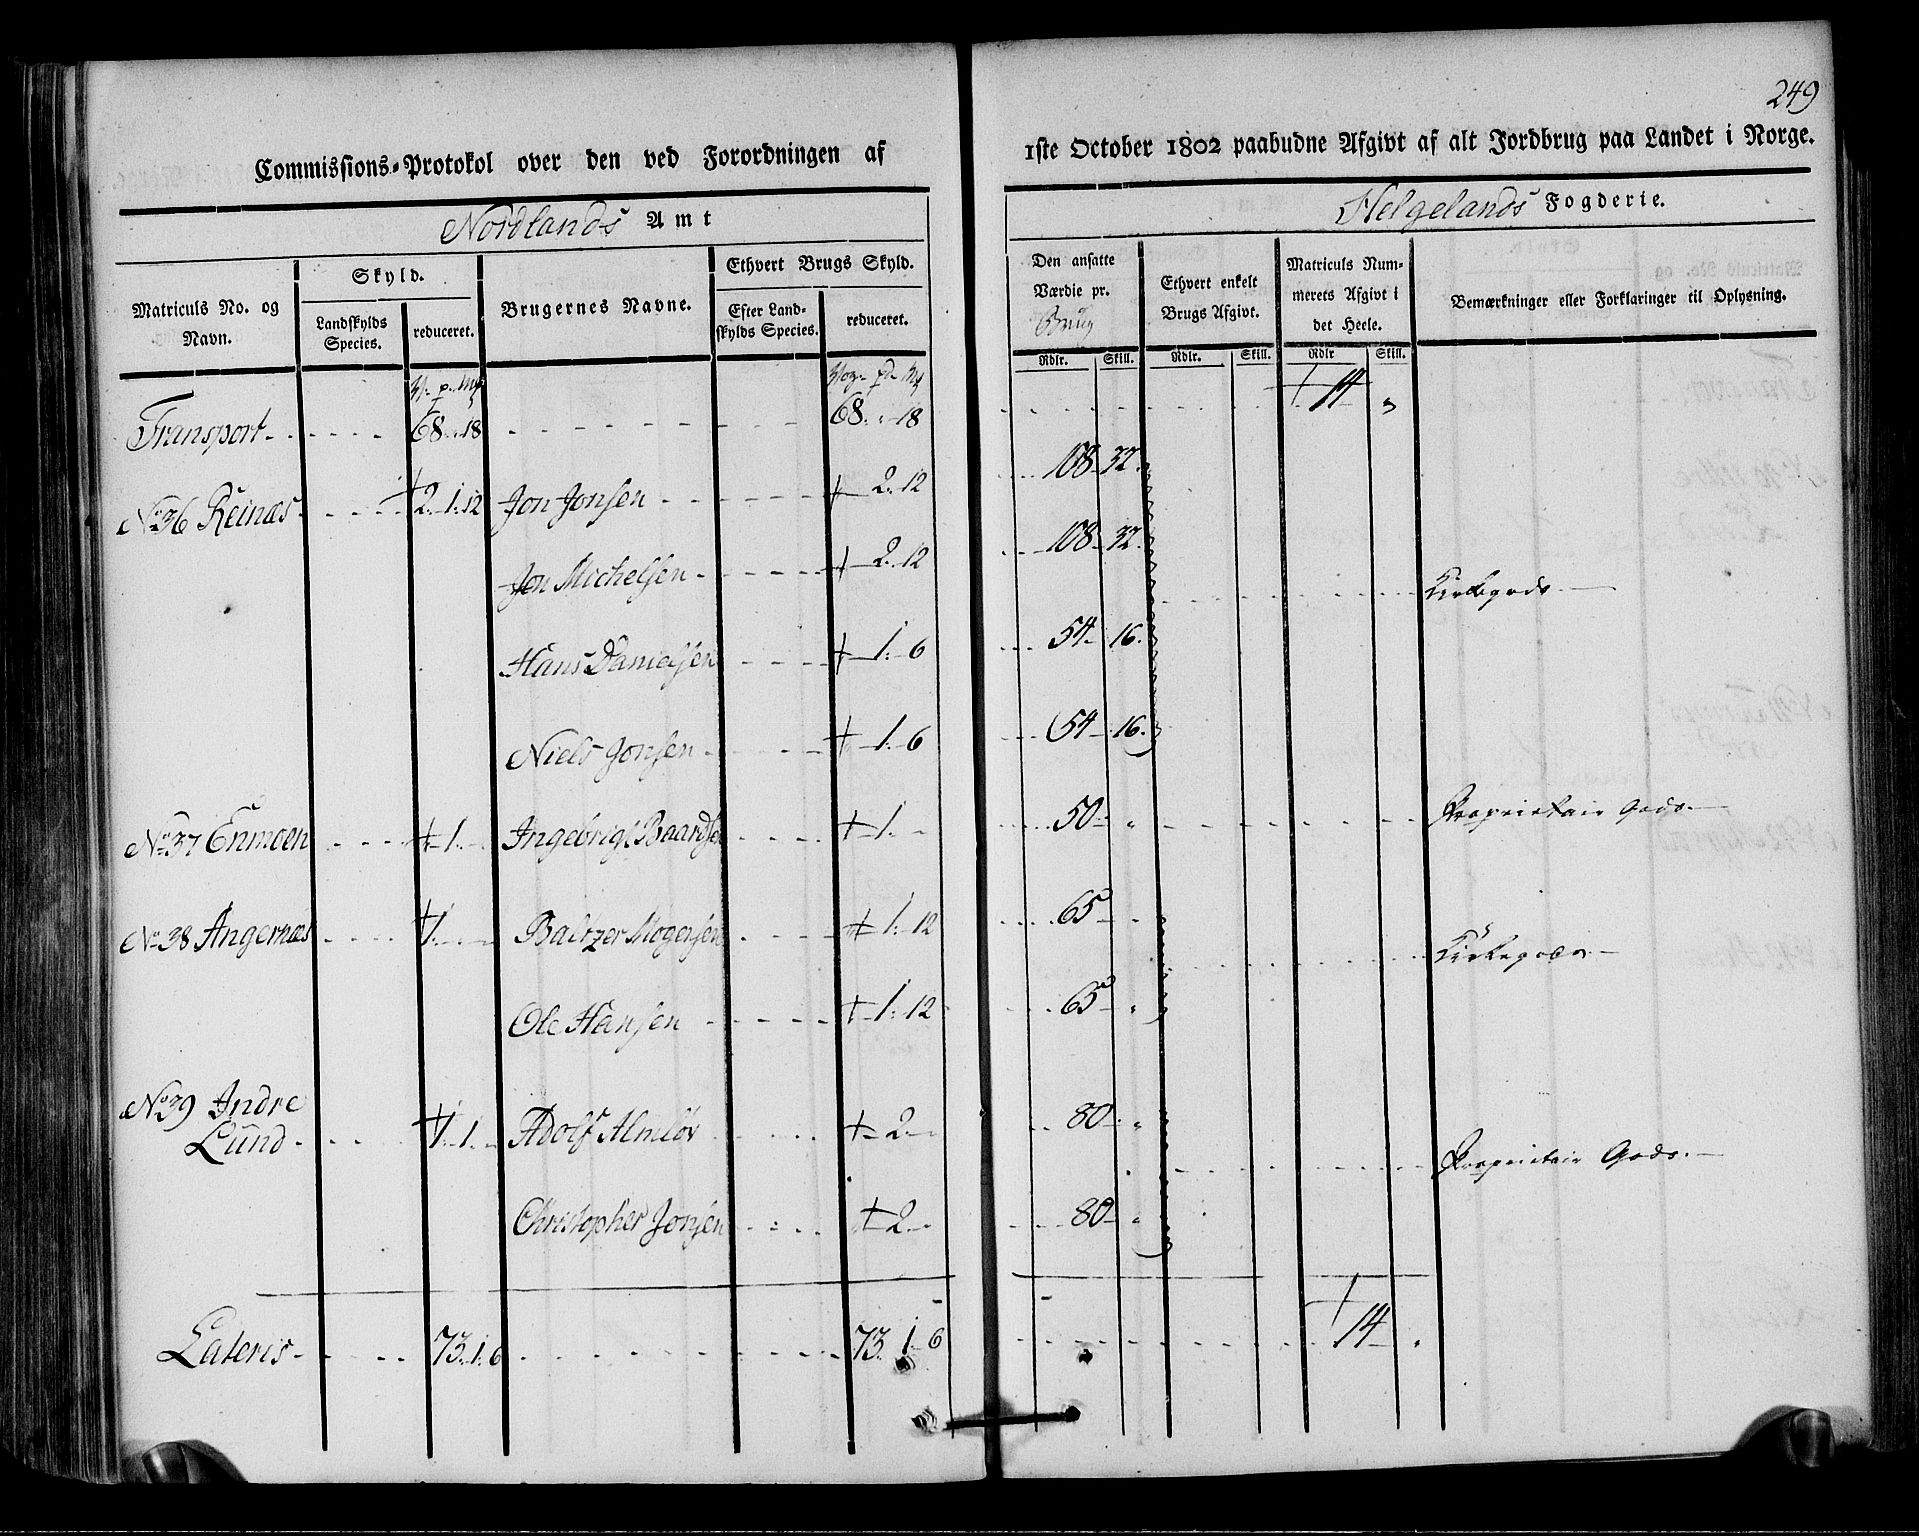 249
Commissions-Protokol over den ved Forordningen af
1ste October 1802 paabudne Afgivt af alt Jordbrug paa Landet i Norge.
Nordlands Amt
Helgelands Fogderie.
Matriculs No. og Navn.
Skyld.
Landskylds Species.
reduceret.
Brugernes Navne.
Ethvert Brugs Skyld.
Efter Landskylds Species.
reduceret.
Den ansatte Værdie pr. Brug
Ethvert enkelt Brugs Afgivt.
Matriculs Nummerets Afgivt i det Heele.
Bemærkninger eller Forklaringer til Oplysning.
Rdlr. Skill. Rdlr. Skill. Rdlr Skill.
Transport 68 " 18 68 " 18 14 "
No 36 Reinæs 2. 1. 12 Jon Jonsen 2. 12 108 32
Jon Michelsen 2. 12 108 32 Kirkegods
Hans Danielsen 1. 6 54 16
Niels Jonsen 1. 6 54 16
No 37 Enmoen 1. Ingebrigt Baardsen 1. 50 " Proprietair Gods
No 38 Angernæs 1. Baltzer Mogensen 1. 12 65 " Kirkegods
Ole Hansen 1. 12 65 "
No 39 Indre
Lund 1. 1. Adolf Almlöv 2 80 " Proprietair Gods
Christopher Jonsen 2 80 "
Lateris 73. 1. 6 73. 1. 6 14 "